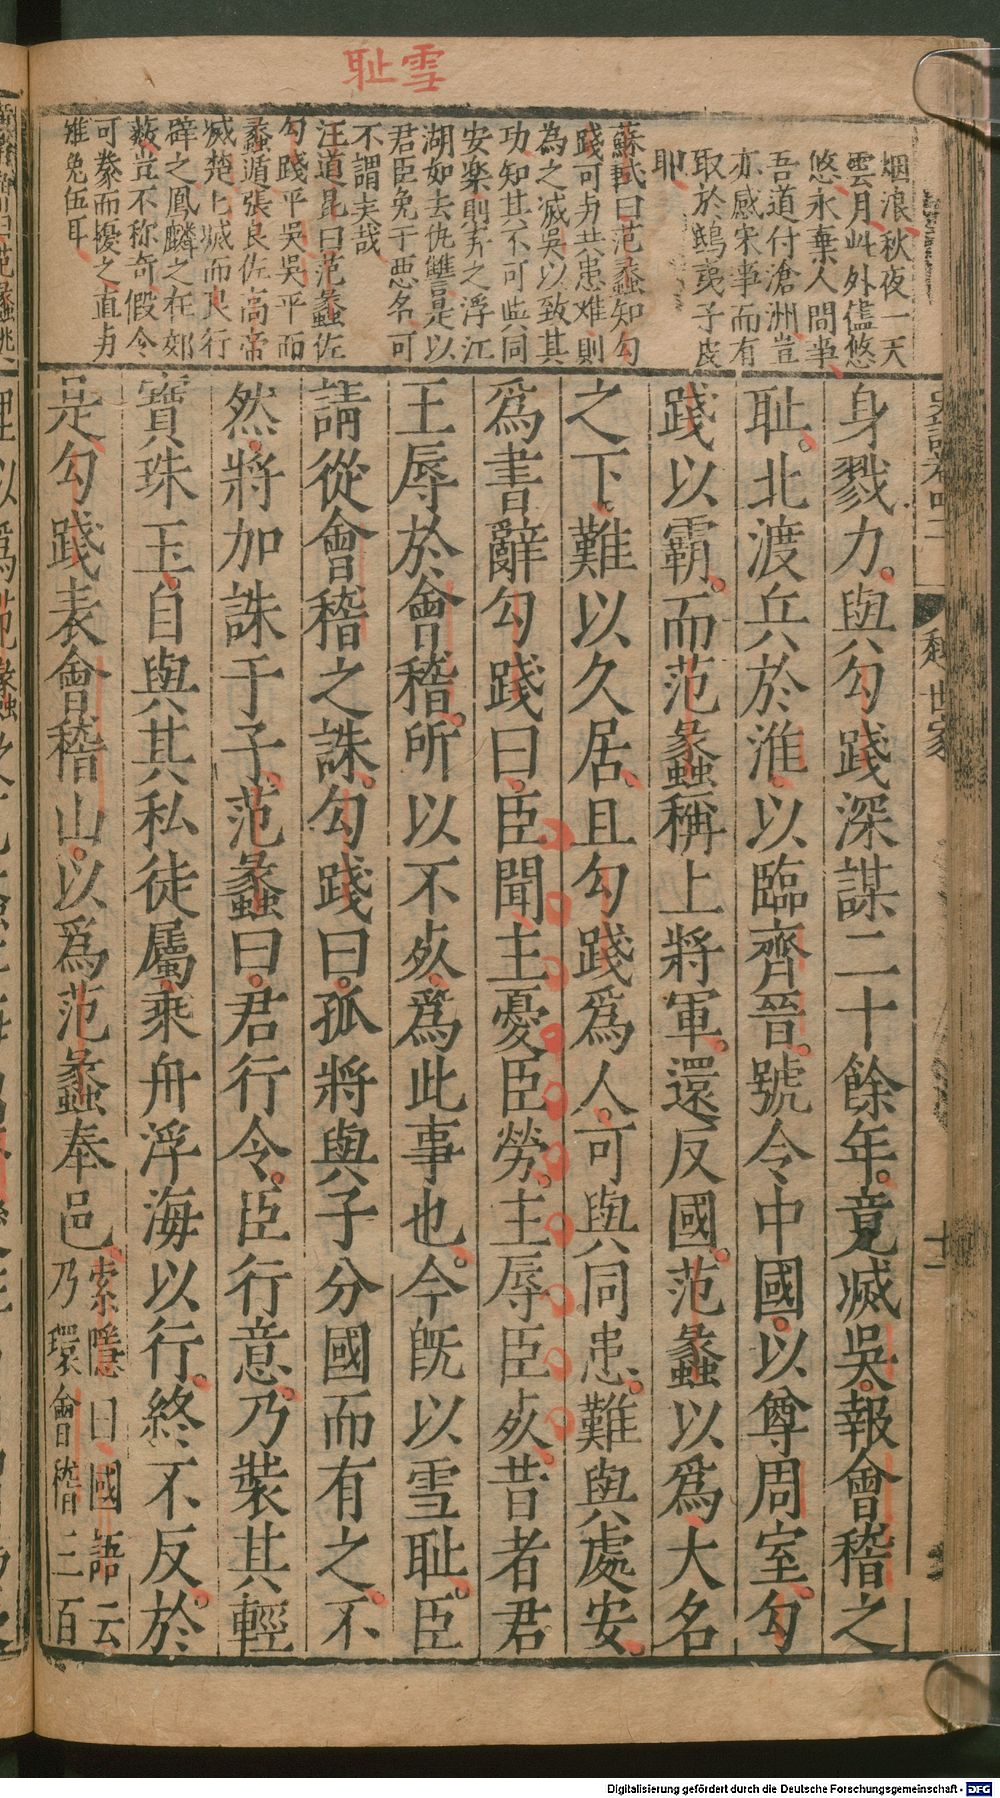 雪耻
烟浪秋夜一天
雲月此外儘悠
悠永棄人間事
吾道付滄洲豈
亦感宋事而有
取於鴟夷子皮
耶
蘇軾曰范蠡知勾
踐可与共患难則
為之滅吳以致其
功知其不可與同
安楽則弃之浮江
湖如去仇讐是以
君臣免于惡名可
不謂夫哉
汪道昆曰范蠡佐
勾踐平吳吳平而
蠡遁張良佐高帝
滅楚楚滅而良行
辟之鳳麟之在郊
薮豈不称奇假令
可豢而擾之直与
雉兔伍耳
身戮力與勾踐深謀二十餘年竟滅吳報會稽之
耻北渡兵於淮以臨齊晉號令中國以尊周室勾
踐以霸而范蠡稱上將軍還反國范蠡以爲大名
之下難以久居且勾踐爲人可與同患難與處安
爲書辭勾踐曰臣聞主憂臣勞主辱臣死昔者君
王辱於會稽所以不死爲此事也今旣以雪耻臣
請從會稽之誅勾踐曰孤將與子分國而有之不
然將加誅于子范蠡曰君行令臣行意乃裝其輕
寶珠玉自與其私徒屬乘舟浮海以行終不反於
是勾踐表會稽山以爲范蠡奉邑
索隱曰國語云
乃環會稽三百
越世家
十一
Digitalisierung gefördert durch die Deutsche Forschungsgemeinschaft - DFG